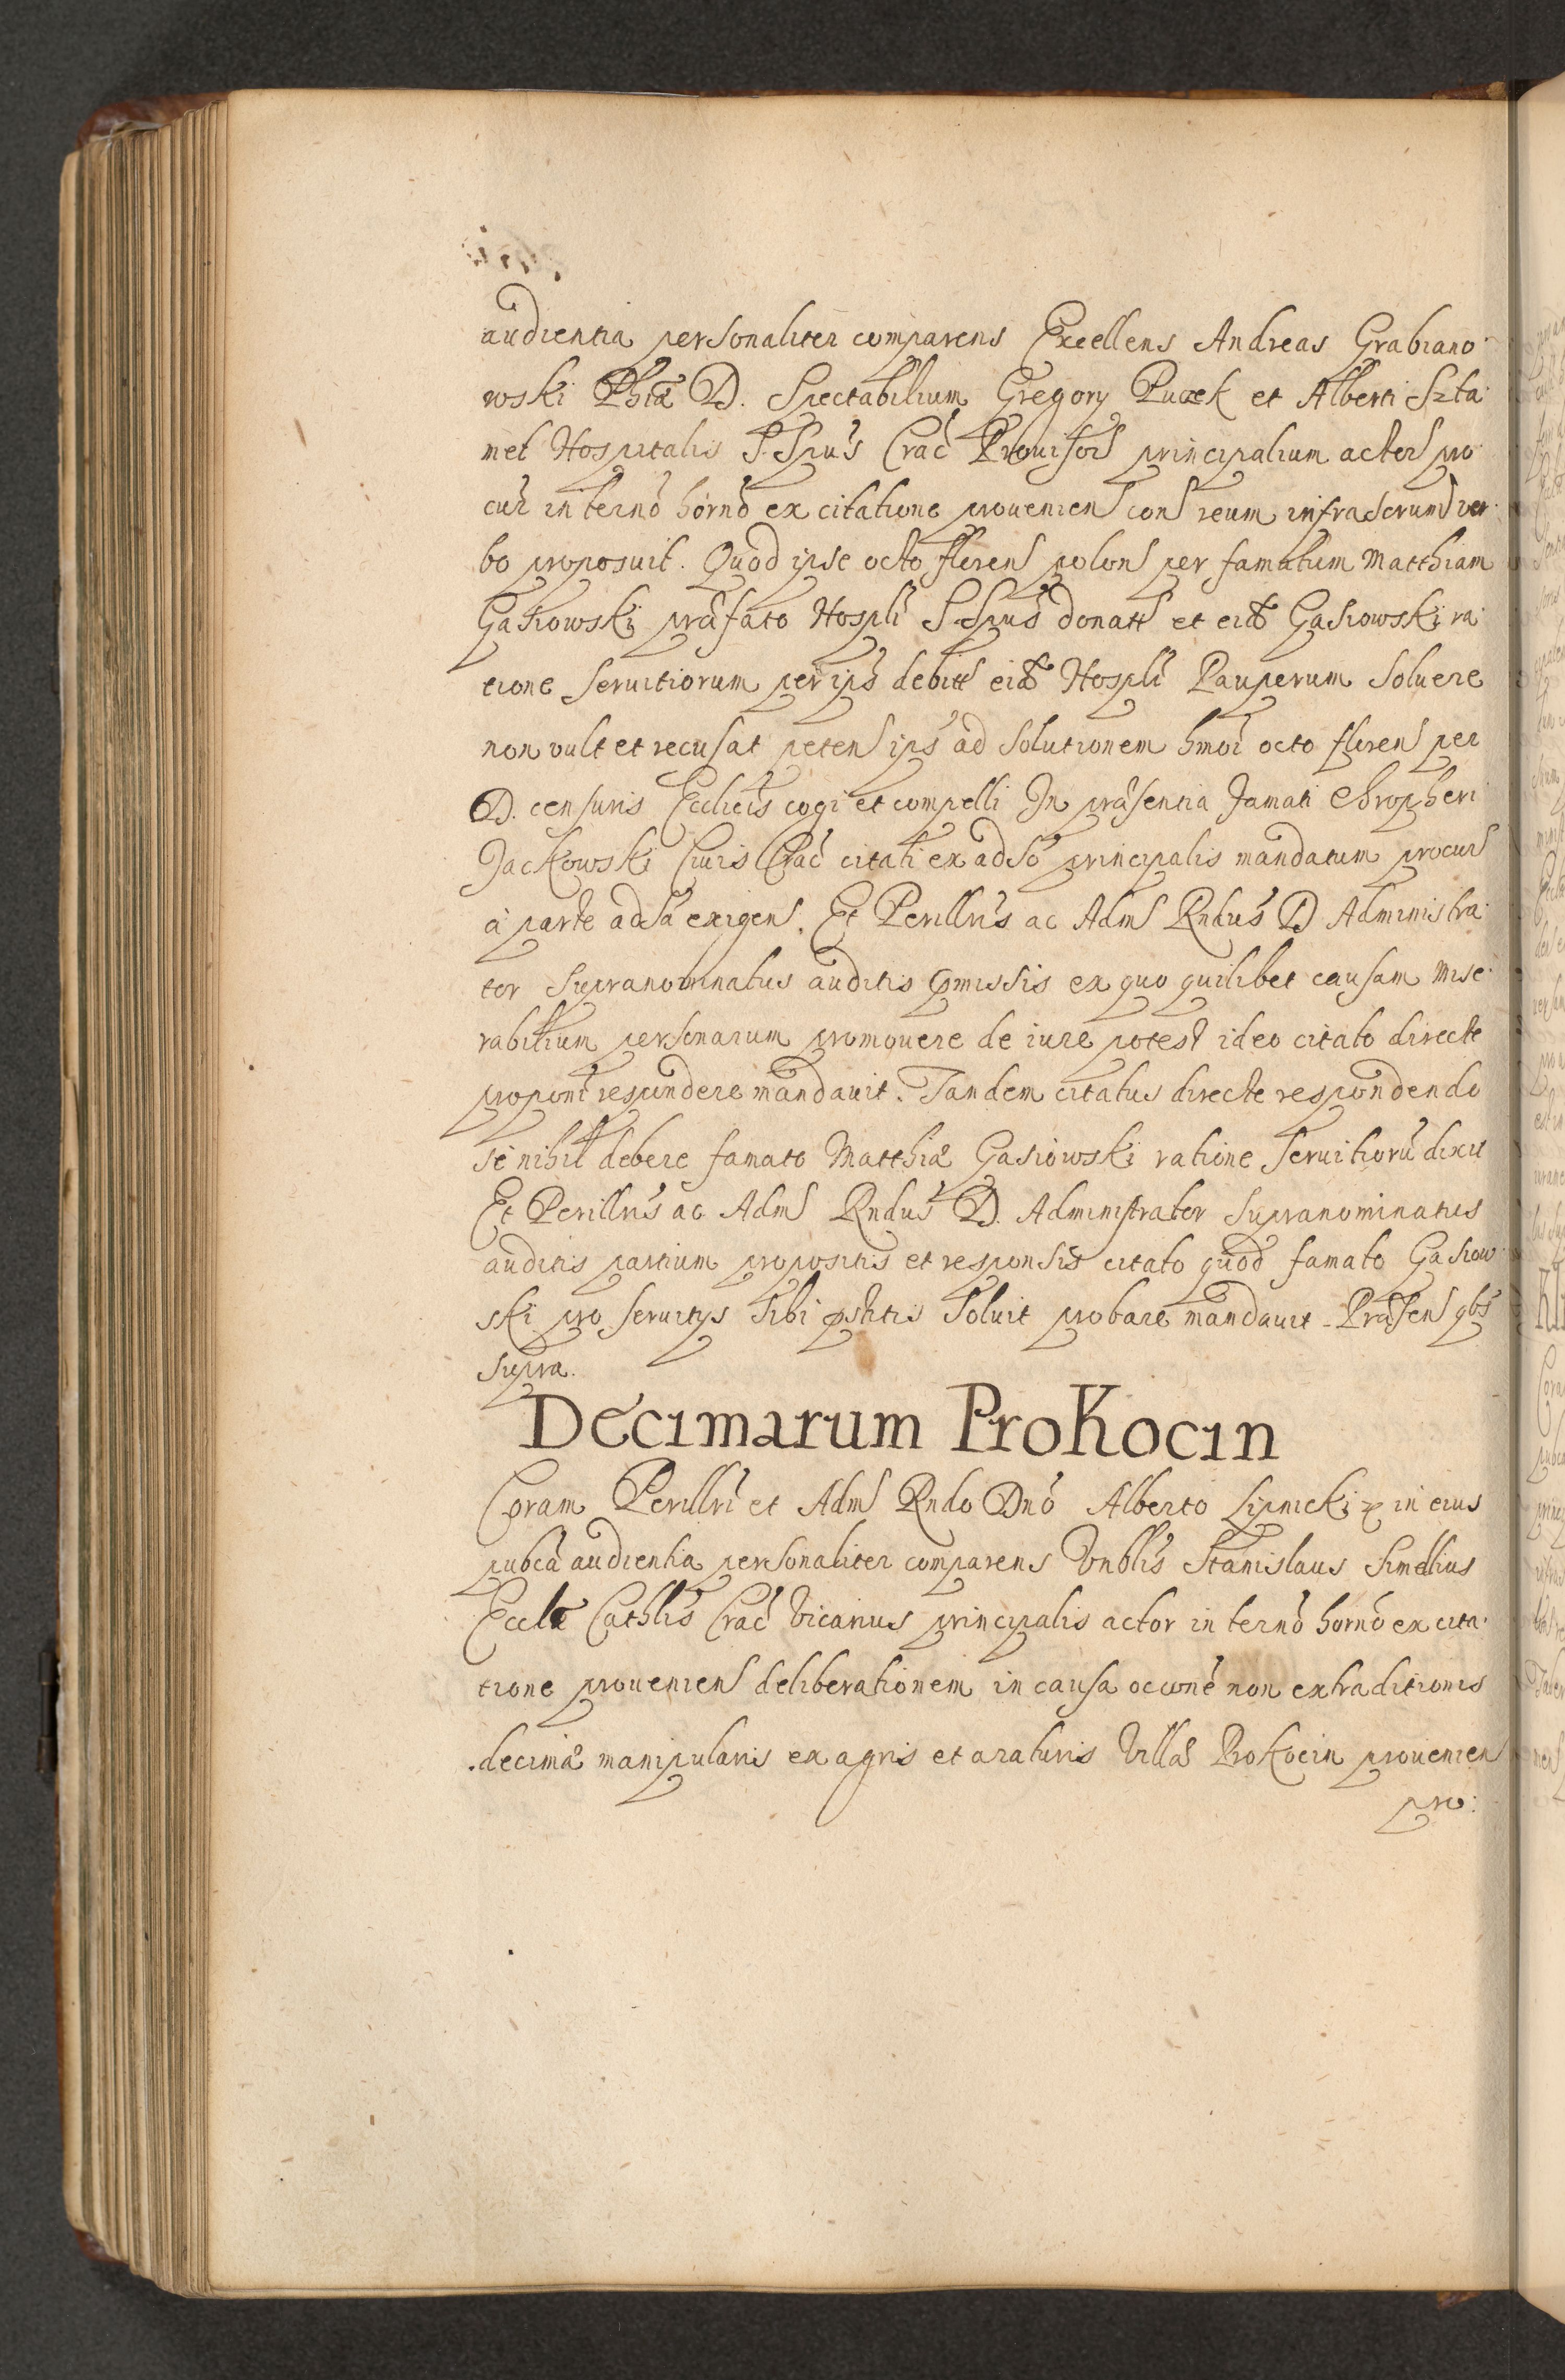 audientia personaliter comparens Excellens Andreas Grabiano
wski Phiæ D. Spectabilium Gregory Pucek et Alberti Szta
met Hospitalis S. Spũs Crac̃ Prouisor̃ principalium actor̃ pro
cur̃ in terno horno ex citatione prouenien̄ con̄ reum infrascrum ver
bo proposuit. Quod ipse octo floren̄ polon̄ per famatum Matthiam
Gasiowski præfato Hospli S Spus donatt et eid Gasiowski ra
tione seruitiorum per ips debitt eid Hospli Pauperum soluere
non vult et recusat peten̄ ips ad solutionem hmoi octo floren̄ per
D. censuris Ecclicis cogi et compelli In præsentia Famati Chropheri
Jackowski Ciuis Crac̃ citati ex adso principalis mandatum procur̄
à parte adsa exigen̄. Et Perillris ac Adm̄ Rndus D Administra
tor supranominatus auditis pmissis ex quo quilibet causam mise
rabilium personarum promouere de iure potest ideo citato directe
propont respondere mandauit. Tandem citatus directe respondendo
se nihil debere famato Matthiæ Gasiowski ratione seruitiorũ dixit
Et Perillris ac Adm̄ Rndus D. Administrator supranominatus
auditis partium propositis et responsis citato quod famato Gasiow
ski pro seruitys sibi pstitis soluit probare mandauit. Præsen̄ qbs
supra.
Decimarum Prokocin
Coram Perillri et Adm̄ Rndo Dno Alberto Lipnicki in eius
pubca audientia personaliter comparens Vnblis Stanislaus Simelius
Eccle Cathlis Crac̃ Vicarius principalis actor in terno horno ex cita
tione prouenien̄ deliberationem in causa occone non extraditionis
decimæ manipularis ex agris et araturis Villæ Prokocin prouenien̄
pro: